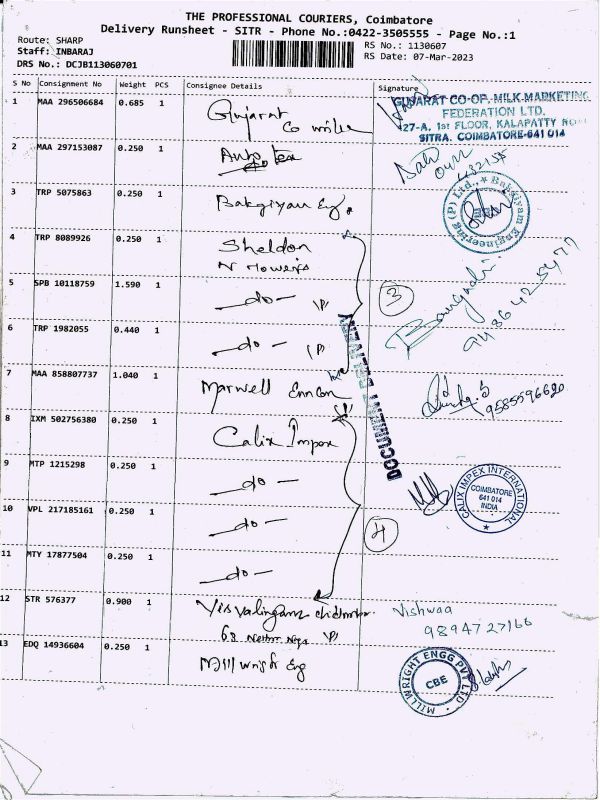 THE PROFESSIONAL COURIERS, Coimbatore
Delivery Runsheet - SITR - Phone No.:0422-3505555 - Page No.:1
Route: SHARP
Staff: INBARAJ
DRS No.: DCJB113060701
RS No.: 1130607
RS Date: 07-Mar-2023
S No Consignment No Weight PCS Consignee Details Signature
1 MAA 296506684 0.685 1 Gujarat
Co milk
GUJARAT CO-OP. MILK MARKETING
FEDERATION LTD.
127-A, 1st FLOOR, KALAPATTY
SITRA, COIMBATORE-641 014
2 MAA 297153087 0.250 1 Auto tex
3 TRP 5075863 0.250 1 Bakgiyam Eng.
Bakgiyam Engineering (P) Ltd.,
4 TRP 8089926 0.250 1 Sheldon
5 SPB 10118759 1.590 1 - do -
3
6 TRP 1982055 0.440 1 - do -
DOCUMENT DELIVERY
7 MAA 858807737 1.040 1 Marwell Enncon
9585596620
8 IXM 502756380 0.250 1 Calix Impex
9 MTP 1215298 0.250 1 - do -
CALIX IMPEX INTERNATIONAL
COIMBATORE
641 014
INDIA
10 VPL 217185161 0.250 1 - do -
4
11 MTY 17877504 0.250 1 - do -
12 STR 576377 0.900 1
Vishwaa
9894727166
13 EDQ 14936604 0.250 1 Millwright Eng
MILLWRIGHT ENGG PVT LTD
CBE